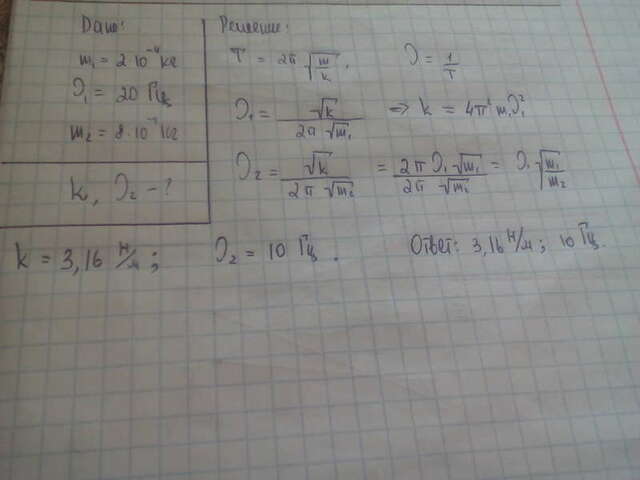 Дано:
m₁ = 2·10⁻⁴ кг
ν₁ = 20 Гц
m₂ = 8·10⁻⁴ кг
k, ν₂ - ?
Решение:
T = 2π √(m/k). ν = 1/T
ν₁ = √k / (2π √m₁) ⇒ k = 4π² m₁ ν₁²
ν₂ = √k / (2π √m₂) = 2π ν₁ √m₁ / (2π √m₂) = ν₁ √(m₁/m₂)
k = 3,16 Н/м; ν₂ = 10 Гц. Ответ: 3,16 Н/м; 10 Гц.